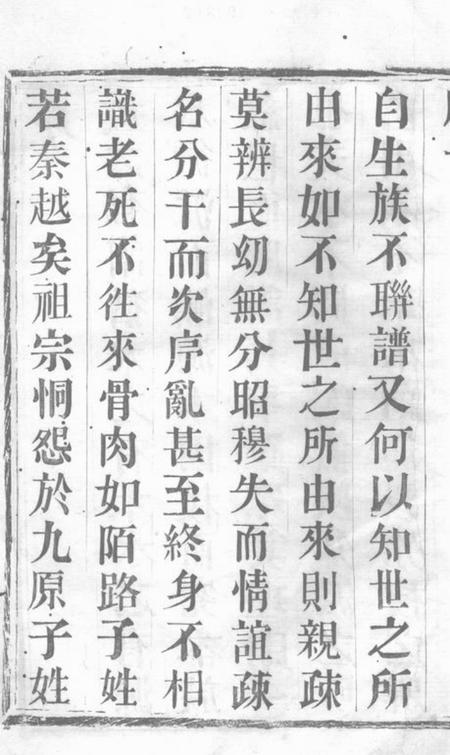 自生族不聯譜又何以知世之所
由來如不知世之所由來則親疎
莫辨長幼無分昭穆失而情誼疎
名分干而次序亂甚至終身不相
識老死不徃來骨肉如陌路子姓
若秦越矣祖宗恫怨於九原子姓